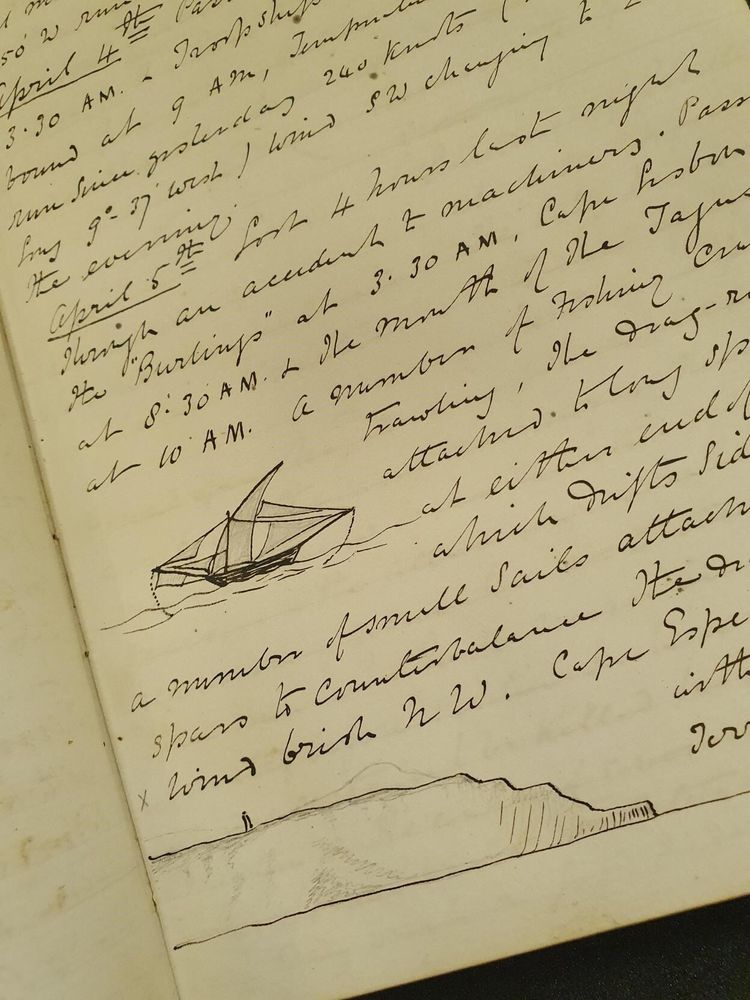 50' W run
April 4th Pass
3.30 AM. - Troopship
bound at 9 AM, Temperatu
run since yesterday 240 Knots (
long 9°-37' West) Wind SW changing to
the evening.
April 5th Lost 4 hours last night
through an accident to machinery. Pass
the "Burlings" at 3.30 AM, Cape Lisbon
at 8.30 AM. & the mouth of the Tagus
at 10 AM. A number of Fishing Cra
trawling, the drag-n
attached to long sp
at either end of
which drifts Sid
a number of small Sails attach
spars to Counterbalance the dr
x Wind brisk NW. Cape Espe
with